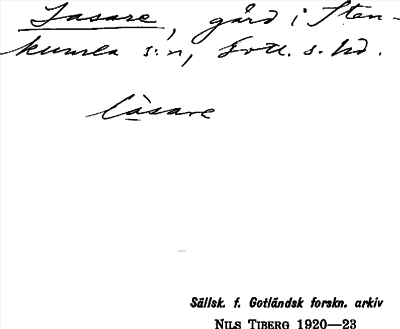 Lasare, gård i Sten-
kumla s:n, Gotl. s. hd.
làsare
Sällsk. f. Gotländsk forskn. arkiv
NILS TIBERG 1920—23